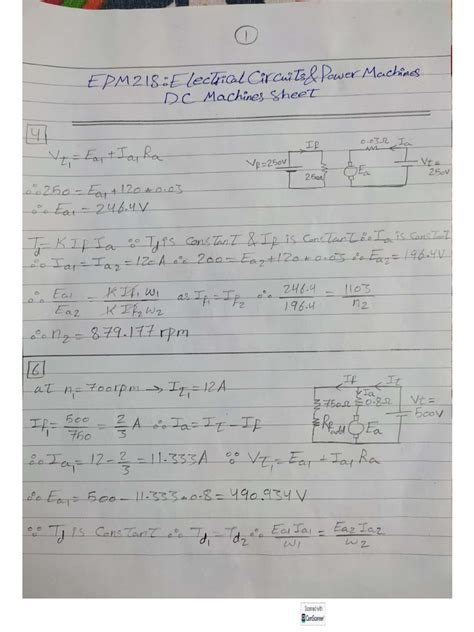 1
EPM218: Electrical Circuits & Power Machines
DC Machines Sheet
4
Vt1 = Ea1 + Ia1 Ra
If
0.03Ω
Ia
VF=250V
250Ω
Ea
Vt=
250V
∴ 250 = Ea1 + 120 * 0.03
∴ Ea1 = 246.4V
Td = K If Ia ∵ Td is constant & If is constant ∴ Ia is constant
∴ Ia1 = Ia2 = 120A ∴ 200 = Ea2 + 120 * 0.03 ∴ Ea2 = 196.4V
∴ Ea1/Ea2 = K If1 ω1/K If2 ω2 as If1 = If2 ∴ 246.4/196.4 = 1103/n2
∴ n2 = 879.177 rpm
6
at n1 = 700rpm → It1 = 12A
If
It
Ia
750Ω
0.8Ω
Vt=
500V
Radd
Ea
If1 = 500/750 = 2/3 A ∴ Ia = It - If
∴ Ia1 = 12 - 2/3 = 11.333A ∵ Vt1 = Ea1 + Ia1 Ra
∴ Ea1 = 500 - 11.333 * 0.8 = 490.934V
∵ Td is constant ∴ Td1 = Td2 ∴ Ea1 Ia1/ω1 = Ea2 Ia2/ω2
Scanned with
CamScanner